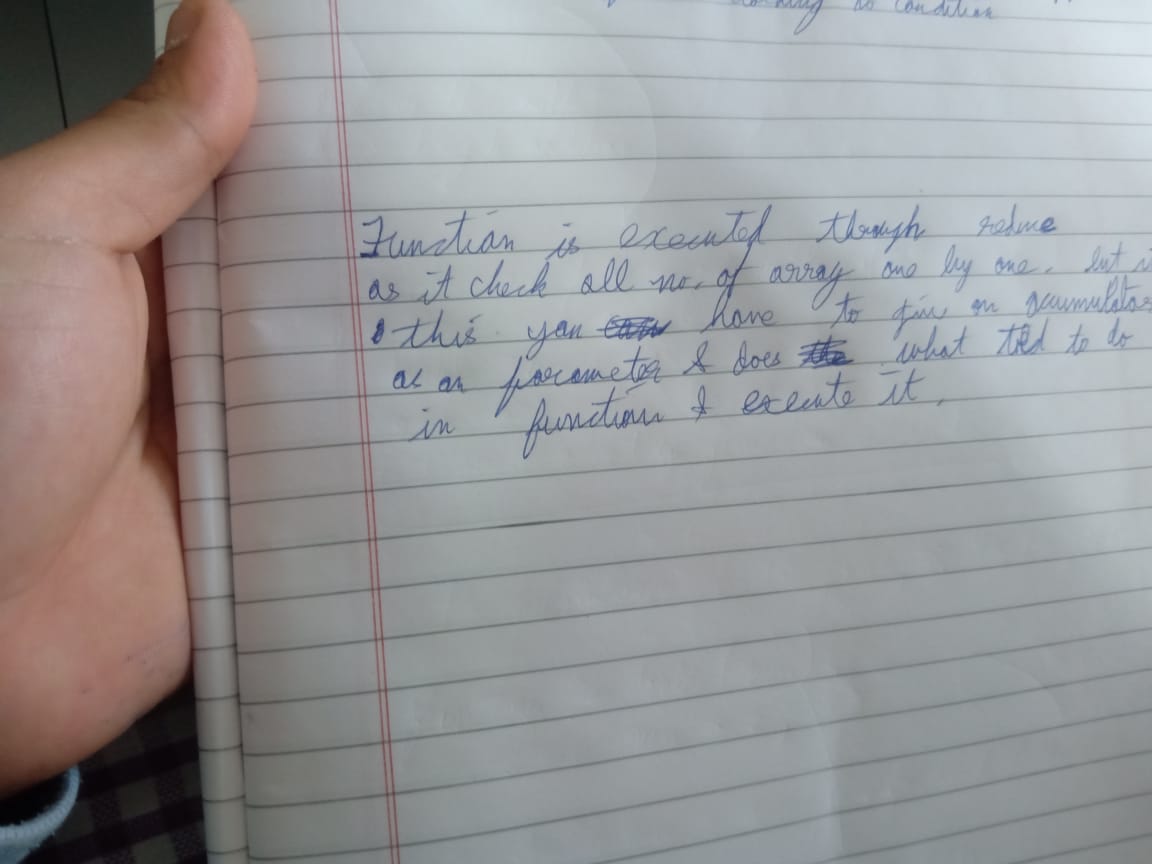 no condition
Function is executed through reduce
as it check all no. of array one by one. but i
this you have to give an accumulator
as an parameter & does what told to do
in function & execute it.